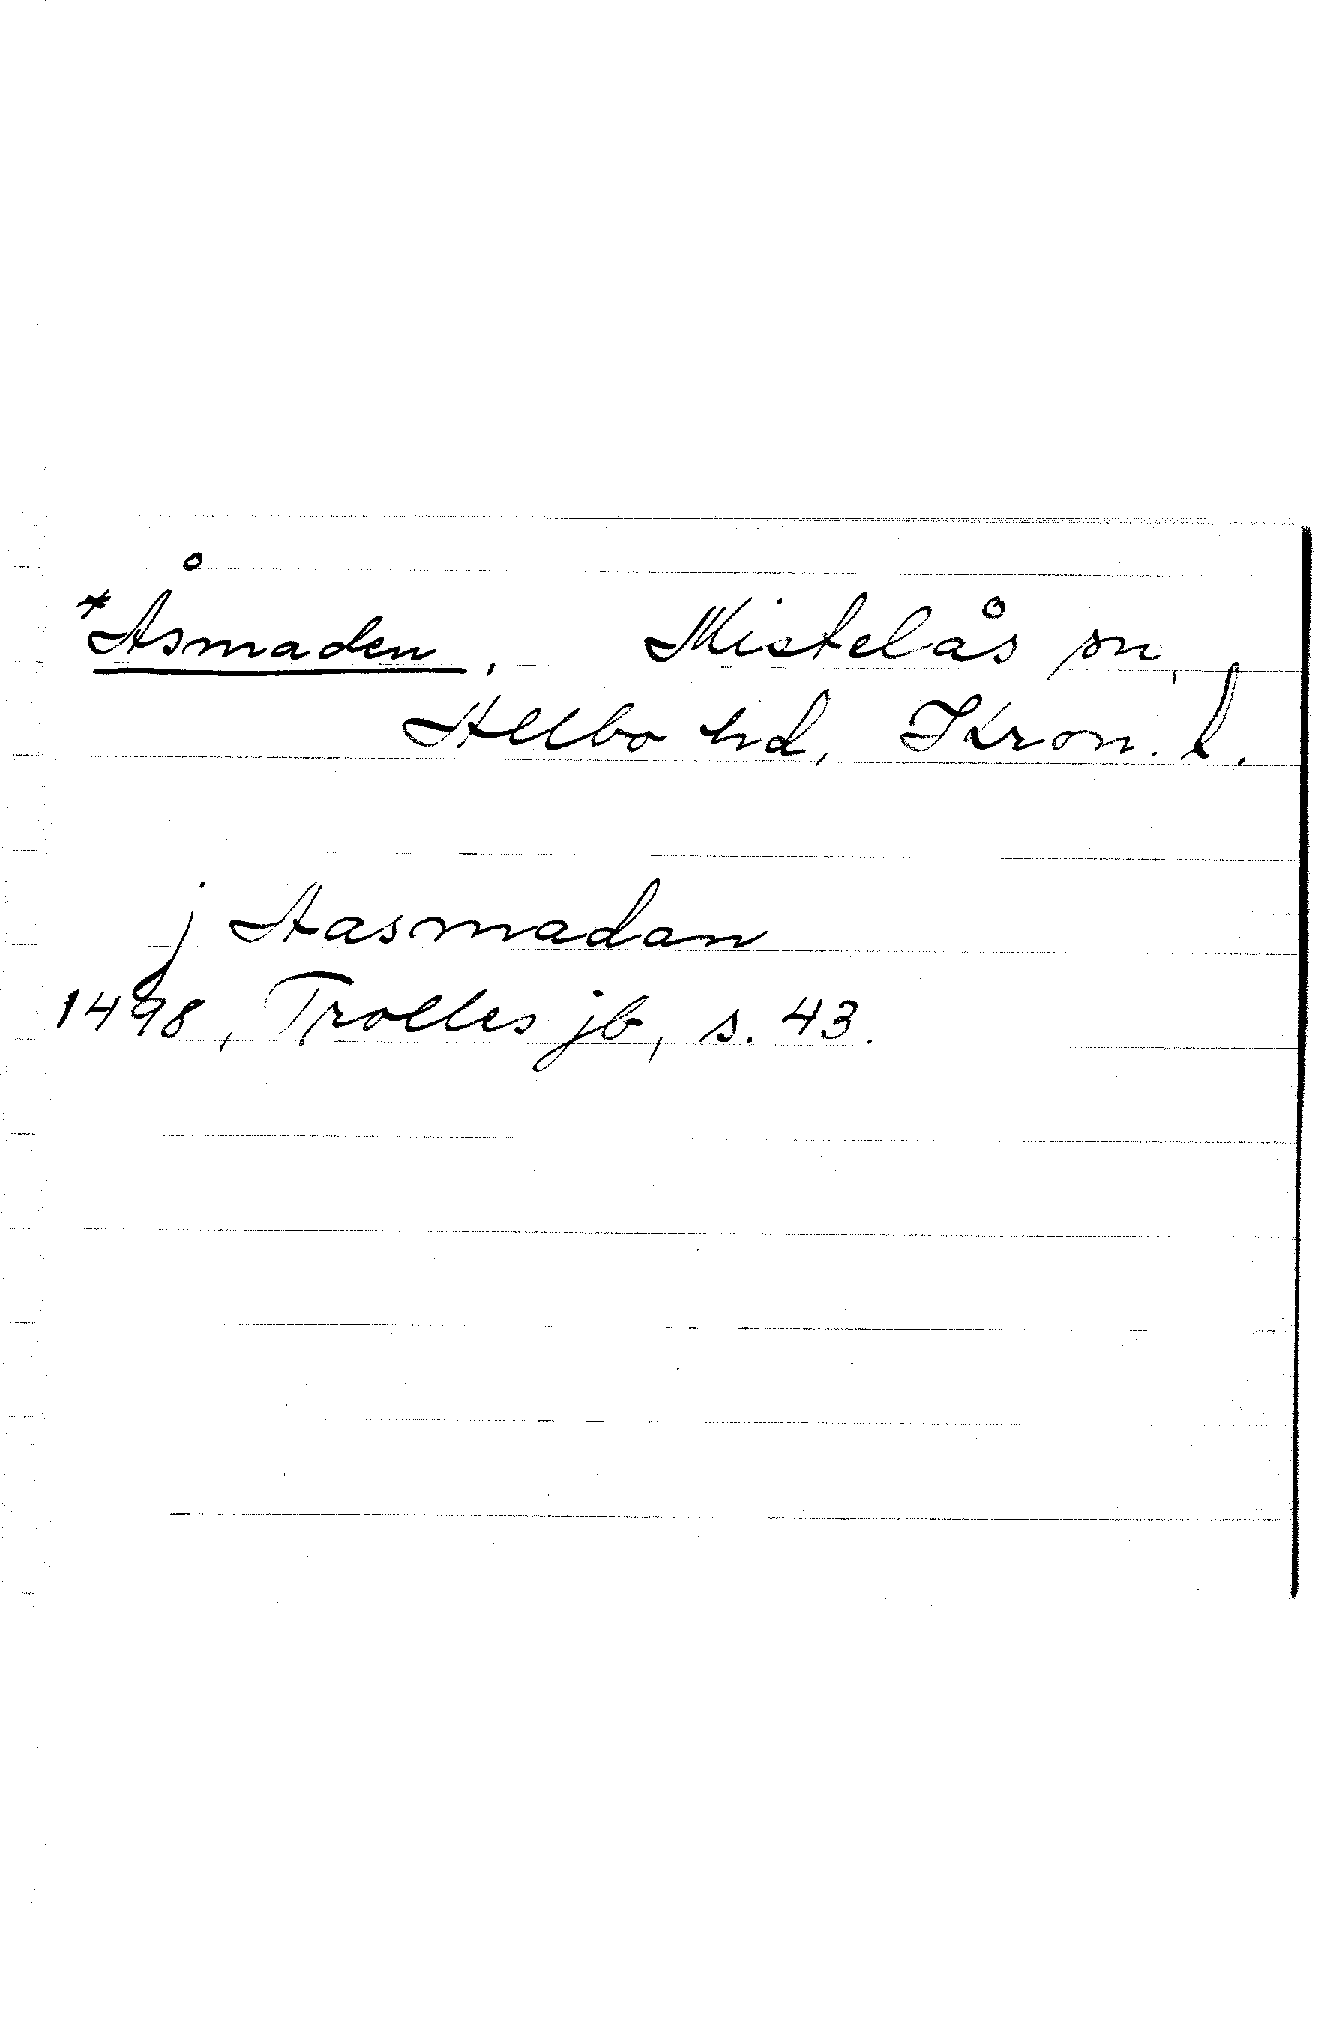 *Åsmaden, Mistelås sn,
Allbo hd, Kron. l.
j Aasmadan
1498, Trolles jb, s. 43.